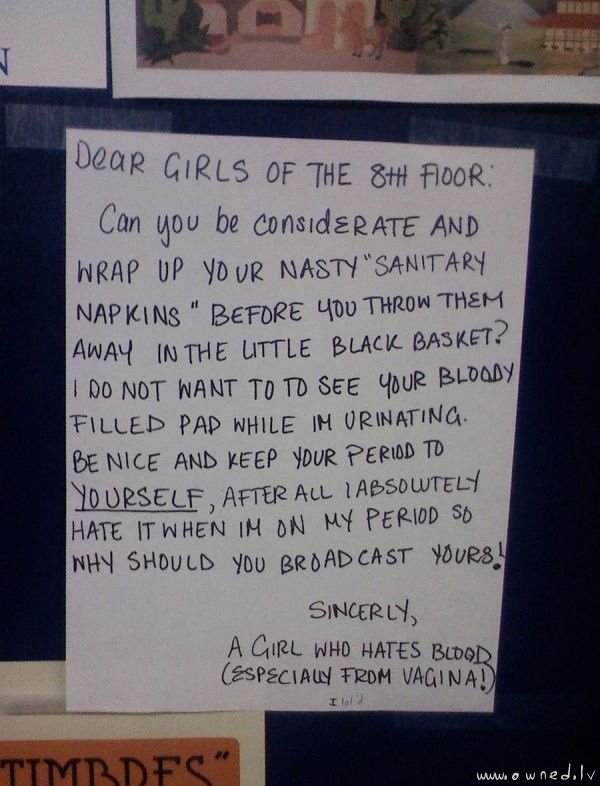 N
Dear GIRLS OF THE 8TH FlOOR:
Can you be considERATE AND
WRAP UP YOUR NASTY "SANITARY
NAPKINS" BEFORE YOU THROW THEM
AWAY IN THE LITTLE BLACK BASKET?
I DO NOT WANT TO TO SEE YOUR BLOODY
FILLED PAD WHILE IM URINATING.
BE NICE AND KEEP YOUR PERIOD TO
YOURSELF, AFTER ALL I ABSOLUTELY
HATE IT WHEN IM ON MY PERIOD SO
WHY SHOULD YOU BROADCAST YOURS!
SINCERLY,
A GIRL WHO HATES BLOOD
(ESPECIALLY FROM VAGINA!)
I lol'd
TIMBRES"
www.owned.lv